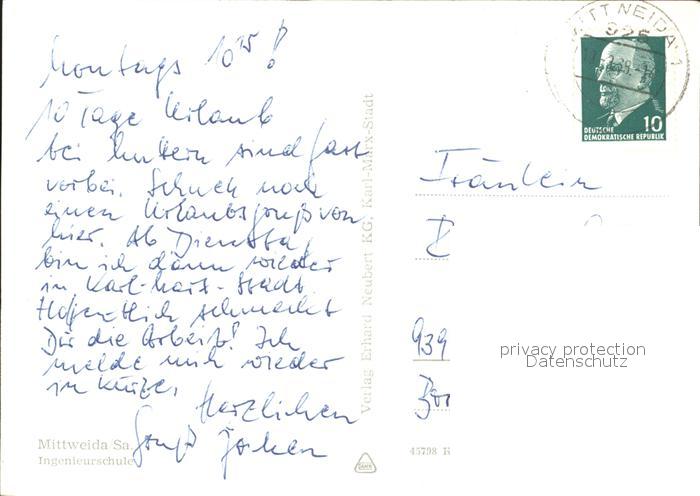 Montags 10 25!
10 Tage Urlaub
bei Muttern sind fast
vorbei. Schnell noch
einen Urlaubsgruß von
hier. Ab Dienstag
bin ich dann wieder
in Karl-Marx-Stadt.
Hoffentlich schmeckt
Dir die Arbeit! Ich
melde mich wieder
in Kürze.
Herzlichen
Gruß Jochen
Mittweida Sa.
Ingenieurschule
Verlag Erhard Neubert KG, Karl-Marx-Stadt
MITTWEIDA 1
925
10
DEUTSCHE
DEMOKRATISCHE REPUBLIK
Fräulein
939
privacy protection
Datenschutz
45798 R